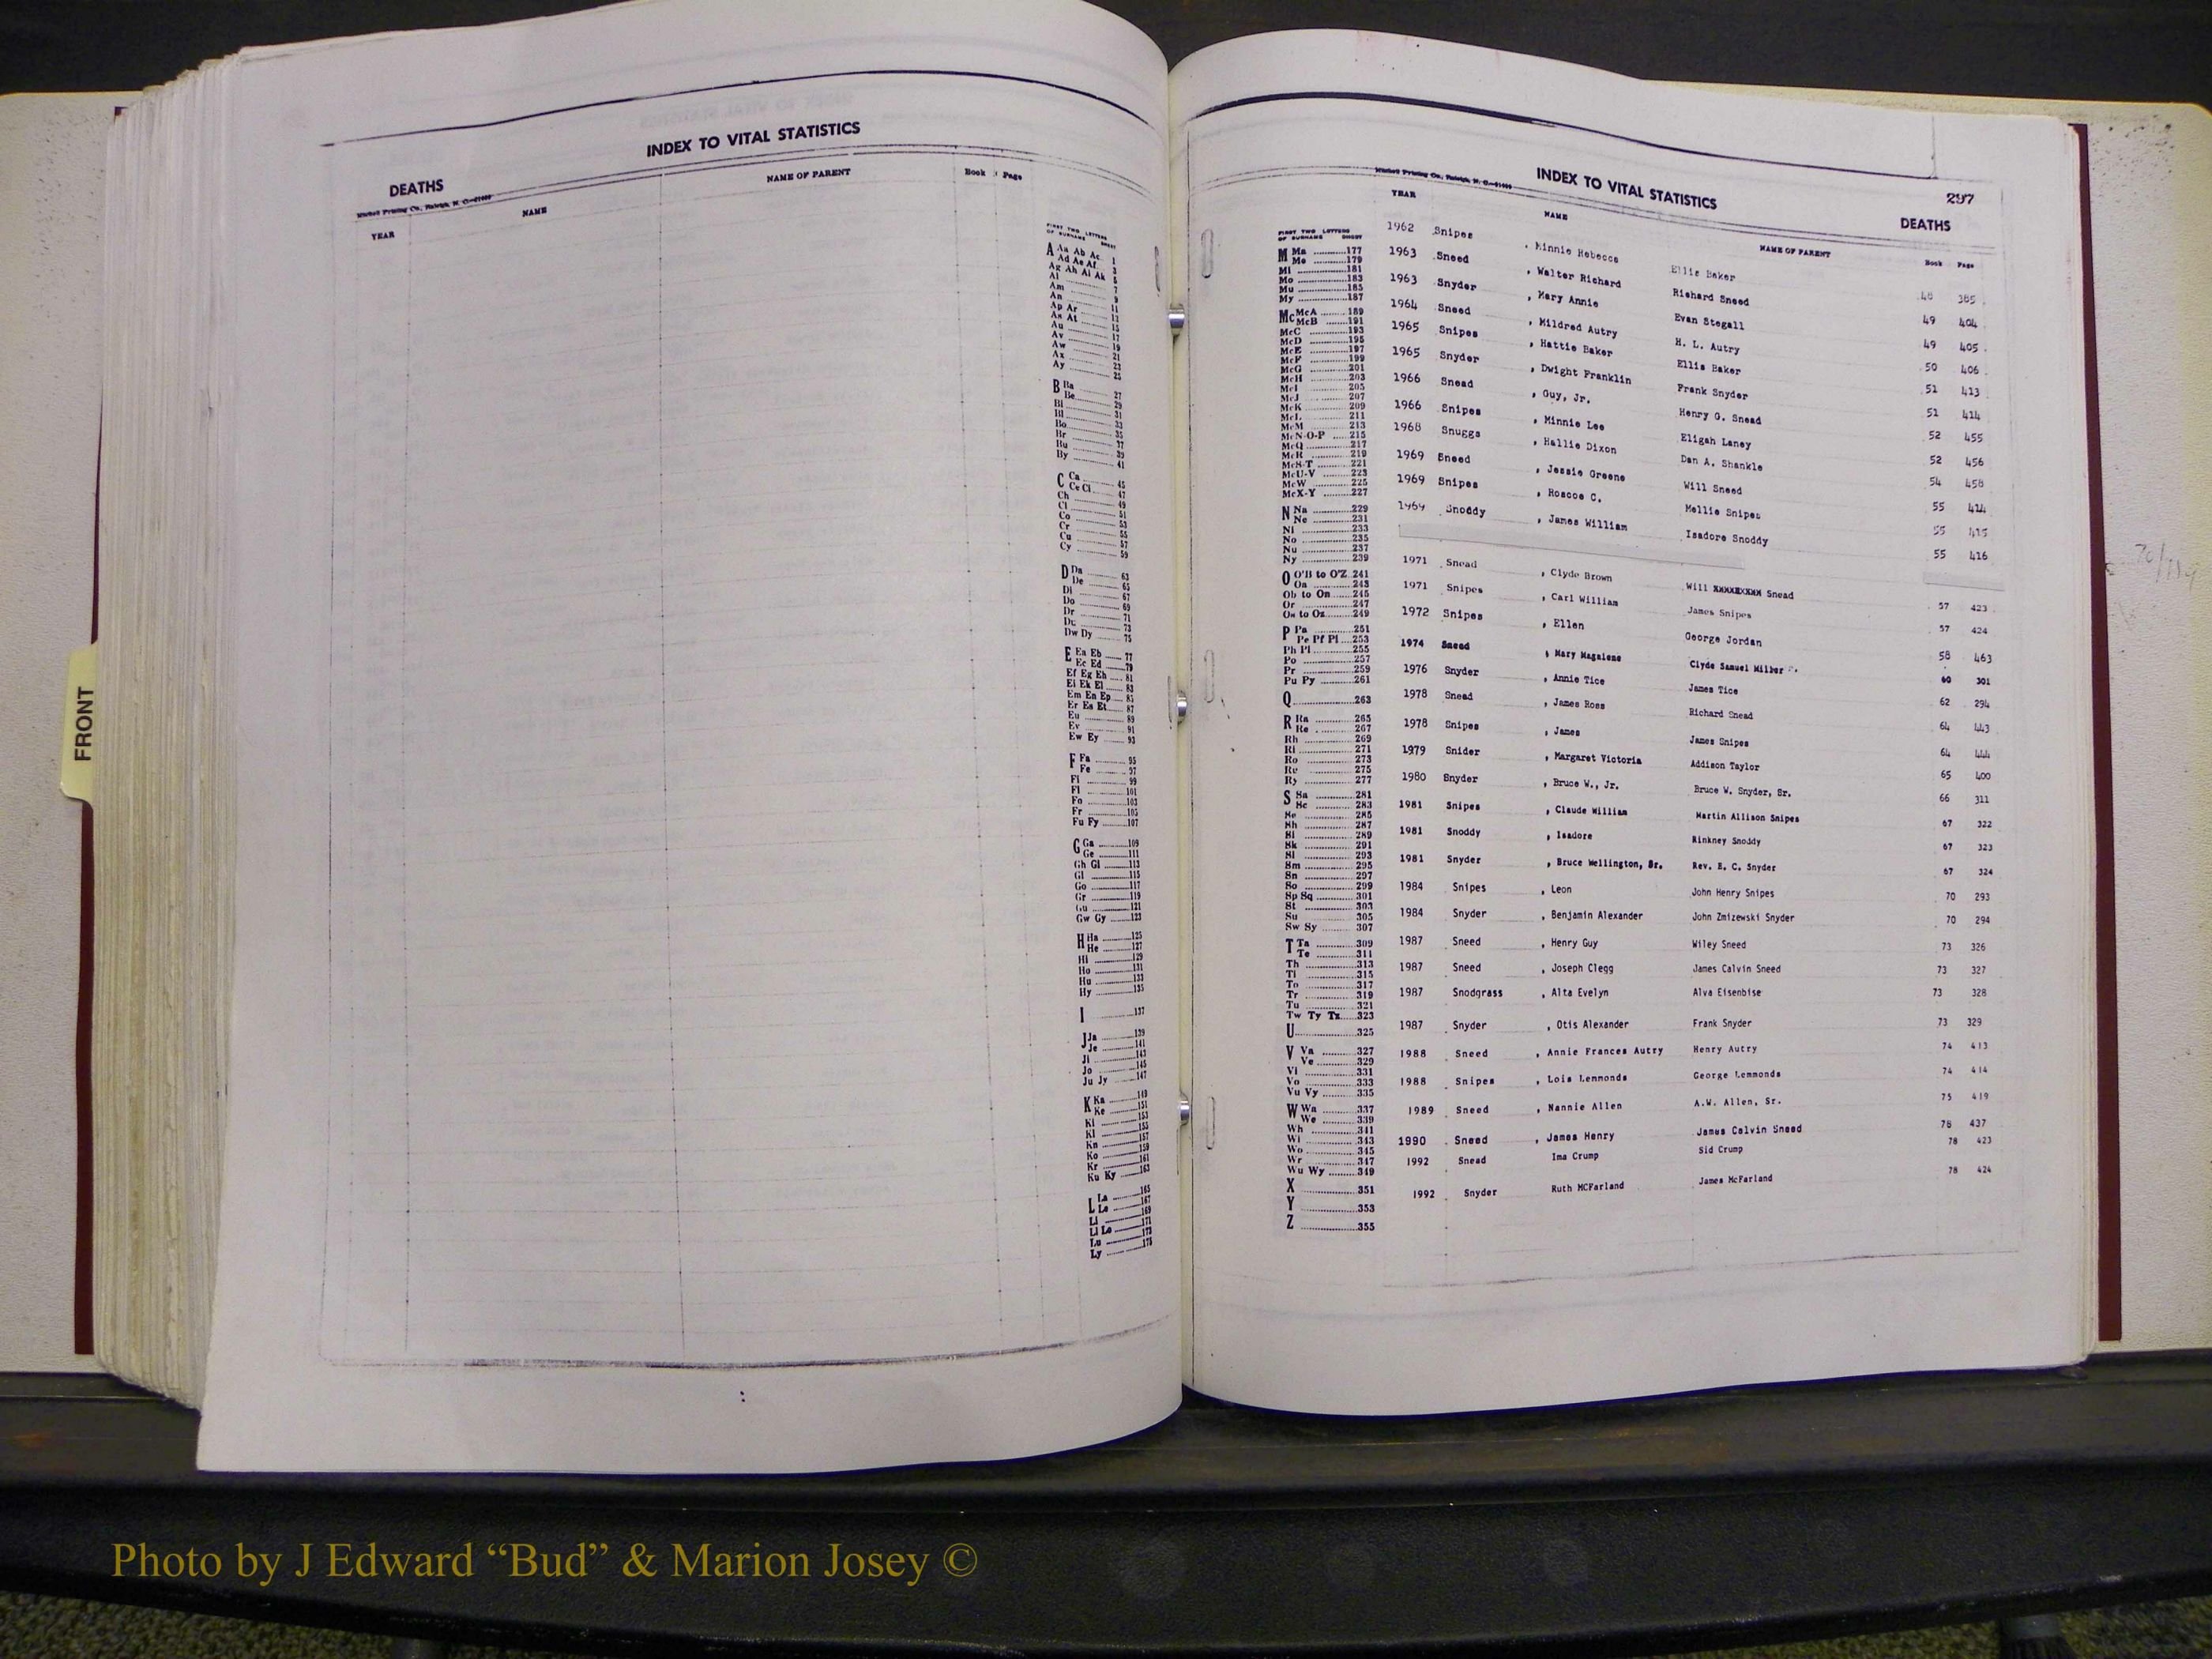 INDEX TO VITAL STATISTICS
DEATHS
Mitchell Printing Co., Raleigh, N. C.
YEAR NAME NAME OF PARENT Book Page
FIRST TWO LETTERS
OF SURNAME SHEET
A Aa Ab Ac 1
Ad Ae Af 3
Ag Ah Ai Ak 5
Al 7
Am 9
An 11
Ap Ar 13
As At 15
Au 17
Av 19
Aw 21
Ax 23
Ay 25
B Ba 27
Be 29
Bi 31
Bl 33
Bo 35
Br 37
Bu 39
By 41
C Ca 45
Ce Ci 47
Ch 49
Cl 51
Co 53
Cr 55
Cu 57
Cy 59
D Da 63
De 65
Di 67
Do 69
Dr 71
Du 73
Dw Dy 75
E Ea Eb 77
Ec Ed 79
Ef Eg Eh 81
Ei Ek El 83
Em En Ep 85
Er Es Et 87
Eu 89
Ev 91
Ew Ey 93
F Fa 95
Fe 97
Fi 99
Fl 101
Fo 103
Fr 105
Fu Fy 107
G Ga 109
Ge 111
Gh Gi 113
Gl 115
Go 117
Gr 119
Gu 121
Gw Gy 123
H Ha 125
He 127
Hi 129
Ho 131
Hu 133
Hy 135
I 137
J Ja 139
Je 141
Ji 143
Jo 145
Ju Jy 147
K Ka 149
Ke 151
Ki 153
Kl 155
Kn 157
Ko 159
Kr 161
Ku Ky 163
L La 165
Le 167
Li 169
Ll Lo 171
Lu 173
Ly 175
FRONT
INDEX TO VITAL STATISTICS
297
DEATHS
Mitchell Printing Co., Raleigh, N. C.
YEAR NAME NAME OF PARENT Book Page
FIRST TWO LETTERS
OF SURNAME SHEET
M Ma 177
Me 179
Mi 181
Mo 183
Mu 185
My 187
Mc McA 189
McB 191
McC 193
McD 195
McE 197
McF 199
McG 201
McH 203
McI 205
McJ 207
McK 209
McL 211
McM 213
McN-O-P 215
McQ 217
McR 219
McS-T 221
McU-V 223
McW 225
McX-Y 227
N Na 229
Ne 231
Ni 233
No 235
Nu 237
Ny 239
O O'B to O'Z 241
Oa 243
Ob to On 245
Or 247
Os to Oz 249
P Pa 251
Pe Pf Pl 253
Ph Pi 255
Po 257
Pr 259
Pu Py 261
Q 263
R Ra 265
Re 267
Rh 269
Ri 271
Ro 273
Ru 275
Ry 277
S Sa 281
Sc 283
Se 285
Sh 287
Si 289
Sk 291
Sl 293
Sm 295
Sn 297
So 299
Sp Sq 301
St 303
Su 305
Sw Sy 307
T Ta 309
Te 311
Th 313
Ti 315
To 317
Tr 319
Tu 321
Tw Ty Tz 323
U 325
V Va 327
Ve 329
Vi 331
Vo 333
Vu Vy 335
W Wa 337
We 339
Wh 341
Wi 343
Wo 345
Wr 347
Wu Wy 349
X 351
Y 353
Z 355
1962 Snipes , Minnie Rebecca Ellis Baker 48 385
1963 Sneed , Walter Richard Richard Sneed 49 404
1963 Snyder , Mary Annie Evan Stegall 49 405
1964 Sneed , Mildred Autry H. L. Autry 50 406
1965 Snipes , Hattie Baker Ellis Baker 51 413
1965 Snyder , Dwight Franklin Frank Snyder 51 414
1966 Snead , Guy, Jr. Henry G. Snead 52 455
1966 Snipes , Minnie Lee Eligah Laney 52 456
1968 Snuggs , Hallie Dixon Dan A. Shankle 54 458
1969 Sneed , Jessie Greene Will Sneed 55 414
1969 Snipes , Roscoe C. Mellie Snipes 55 415
1969 Snoddy , James William Isadore Snoddy 55 416
1971 Snead , Clyde Brown Will Snead 57 423
1971 Snipes , Carl William James Snipes 57 424
1972 Snipes , Ellen George Jordan 58 463
1974 Snead , Mary Magalene Clyde Samuel 60 301
1976 Snyder , Annie Tice James Tice 62 294
1978 Snead , James Ross Richard Snead 64 443
1978 Snipes , James James Snipes 64 444
1979 Snider , Margaret Victoria Addison Taylor 65 400
1980 Snyder , Bruce W., Jr. Bruce W. Snyder, Sr. 66 311
1981 Snipes , Claude William Martin Allison Snipes 67 322
1981 Snoddy , Isadore Rinkney Snoddy 67 323
1981 Snyder , Bruce Wellington, Sr. Rev. E. C. Snyder 67 324
1984 Snipes , Leon John Henry Snipes 70 293
1984 Snyder , Benjamin Alexander John Zmizewski Snyder 70 294
1987 Sneed , Henry Guy Wiley Sneed 73 326
1987 Sneed , Joseph Clegg James Calvin Sneed 73 327
1987 Snodgrass , Alta Evelyn Alva Eisenbise 73 328
1987 Snyder , Otis Alexander Frank Snyder 73 329
1988 Sneed , Annie Frances Autry Henry Autry 74 413
1988 Snipes , Lois Lemmonds George Lemmonds 74 414
1989 Sneed , Nannie Allen A.W. Allen, Sr. 75 419
1990 Sneed , James Henry James Calvin Sneed 76 437
1992 Snead Ima Crump Sid Crump 78 423
1992 Snyder Ruth MCFarland James McFarland 78 424
Photo by J Edward “Bud” & Marion Josey ©